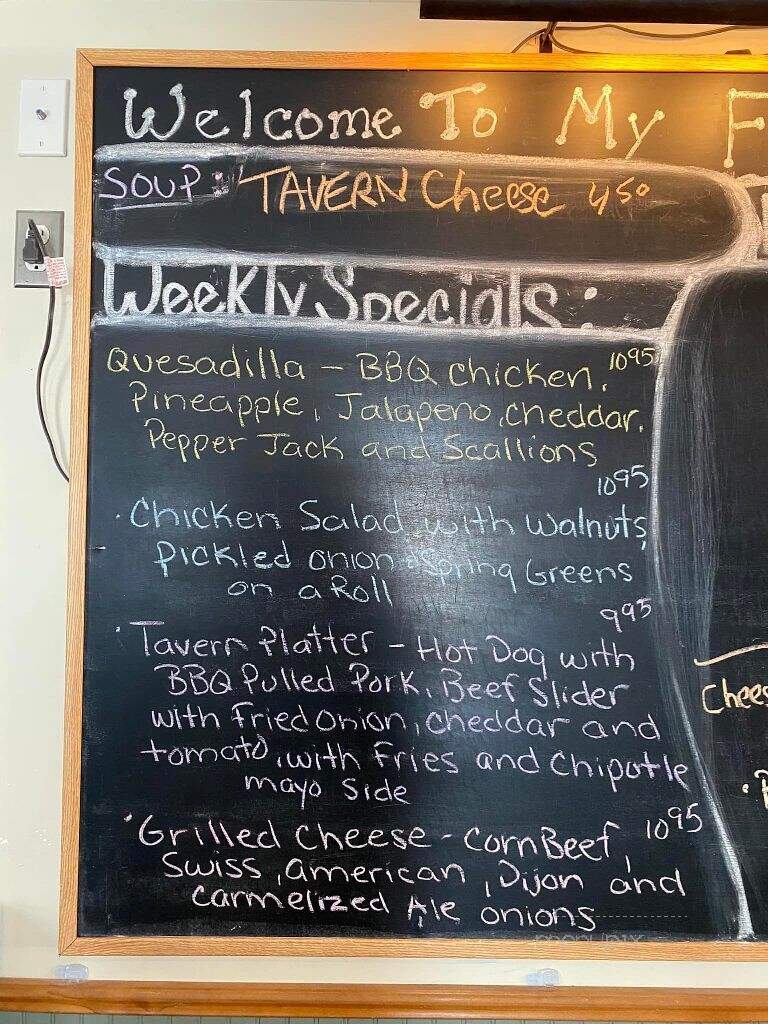 Welcome To My F
SOUP: TAVERN Cheese 4 50
Weekly Specials:
Quesadilla - BBQ chicken, 10 95
Pineapple, Jalapeno, cheddar,
Pepper Jack and Scallions
10 95
· Chicken Salad with walnuts,
pickled onion & Spring Greens
on a Roll
9 95
· Tavern Platter - Hot Dog with
BBQ Pulled Pork, Beef Slider
with fried onion, cheddar and
tomato, with fries and Chipotle
mayo side
· Grilled Cheese - Corn Beef, 10 95
Swiss, american, Dijon and
carmelized Ale onions
Chees